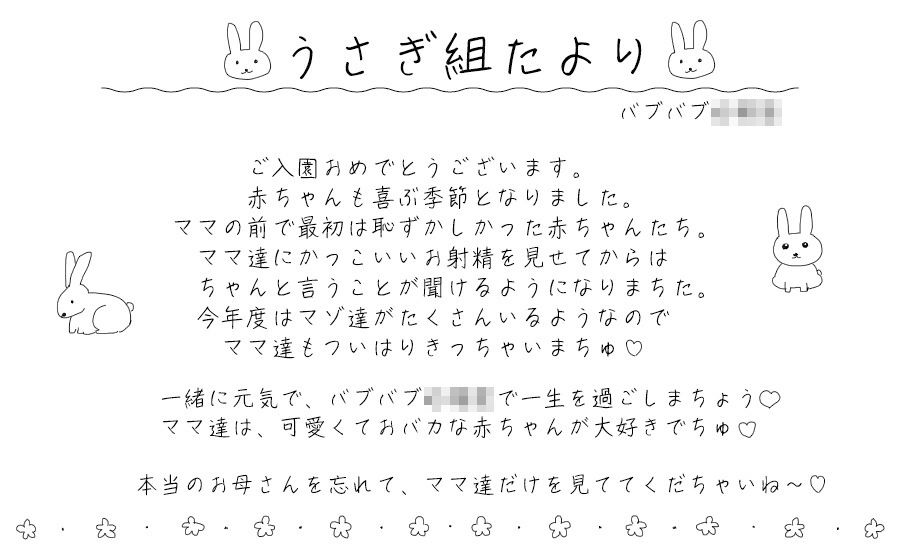 うさぎ組たより
バブバブ
ご入園おめでとうございます。
赤ちゃんも喜ぶ季節となりました。
ママの前で最初は恥ずかしかった赤ちゃんたち。
ママ達にかっこいいお射精を見せてからは
ちゃんと言うことが聞けるようになりまちた。
今年度はマゾ達がたくさんいるようなので
ママ達もついはりきっちゃいまちゅ♡
一緒に元気で、バブバブで一生を過ごしまちょう♡
ママ達は、可愛くておバカな赤ちゃんが大好きでちゅ♡
本当のお母さんを忘れて、ママ達だけを見ててくだちゃいね～♡